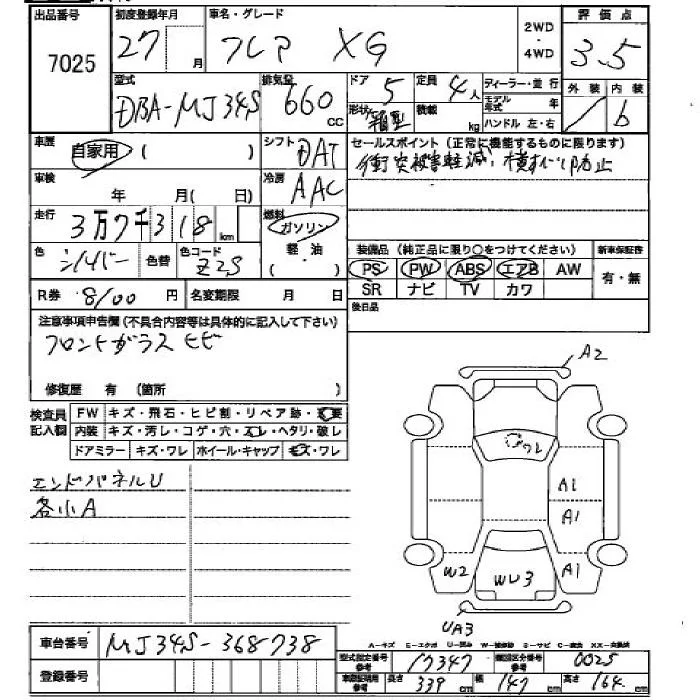 出品番号 7025
初度登録年月 27 月
車名・グレード フレア XG
2WD ・ 4WD
評価点 3.5
型式 DBA-MJ34S
排気量 660 cc
ドア 5
定員 4人
形状 箱型
積載 kg
ディーラー・並行
モデル年式 年
ハンドル 左・右
外装 内装 b
車歴 自家用 ( )
シフト DAT
セールスポイント (正常に機能するものに限ります)
衝突被害軽減、横すべり防止
車検 年 月( 日)
冷房 AAC
走行 3万7千318 km
燃料 ガソリン 軽油 ( )
色 シルバー 色替
色コード Z2S
装備品 (純正品に限り○をつけてください)
新車保証書
PS PW ABS エアB AW
有・無
SR ナビ TV カワ
R券 8100 円
名変期限 月 日
後日品
注意事項申告欄 (不具合内容等は具体的に記入して下さい)
フロントガラスヒビ
修復歴 有 (箇所 )
検査員記入欄
FW キズ・飛石・ヒビ割・リペア跡・交要
内装 キズ・汚レ・コゲ・穴・スレ・ヘタリ・破レ
ドアミラー キズ・ワレ ホイール・キャップ キズ・ワレ
エンドパネルU
各小A
A2
ワレ
A1
A1
W2
WU3
A1
UA3
車台番号 MJ34S-368738
登録番号
A-キズ E-エクボ U-凹み W-補修跡 S-サビ C-腐食 XX-交換済
型式指定番号 参考 17347
類別区分番号 参考 0025
車検証記録 参考 長さ 339 cm 幅 147 cm 高さ 164 cm